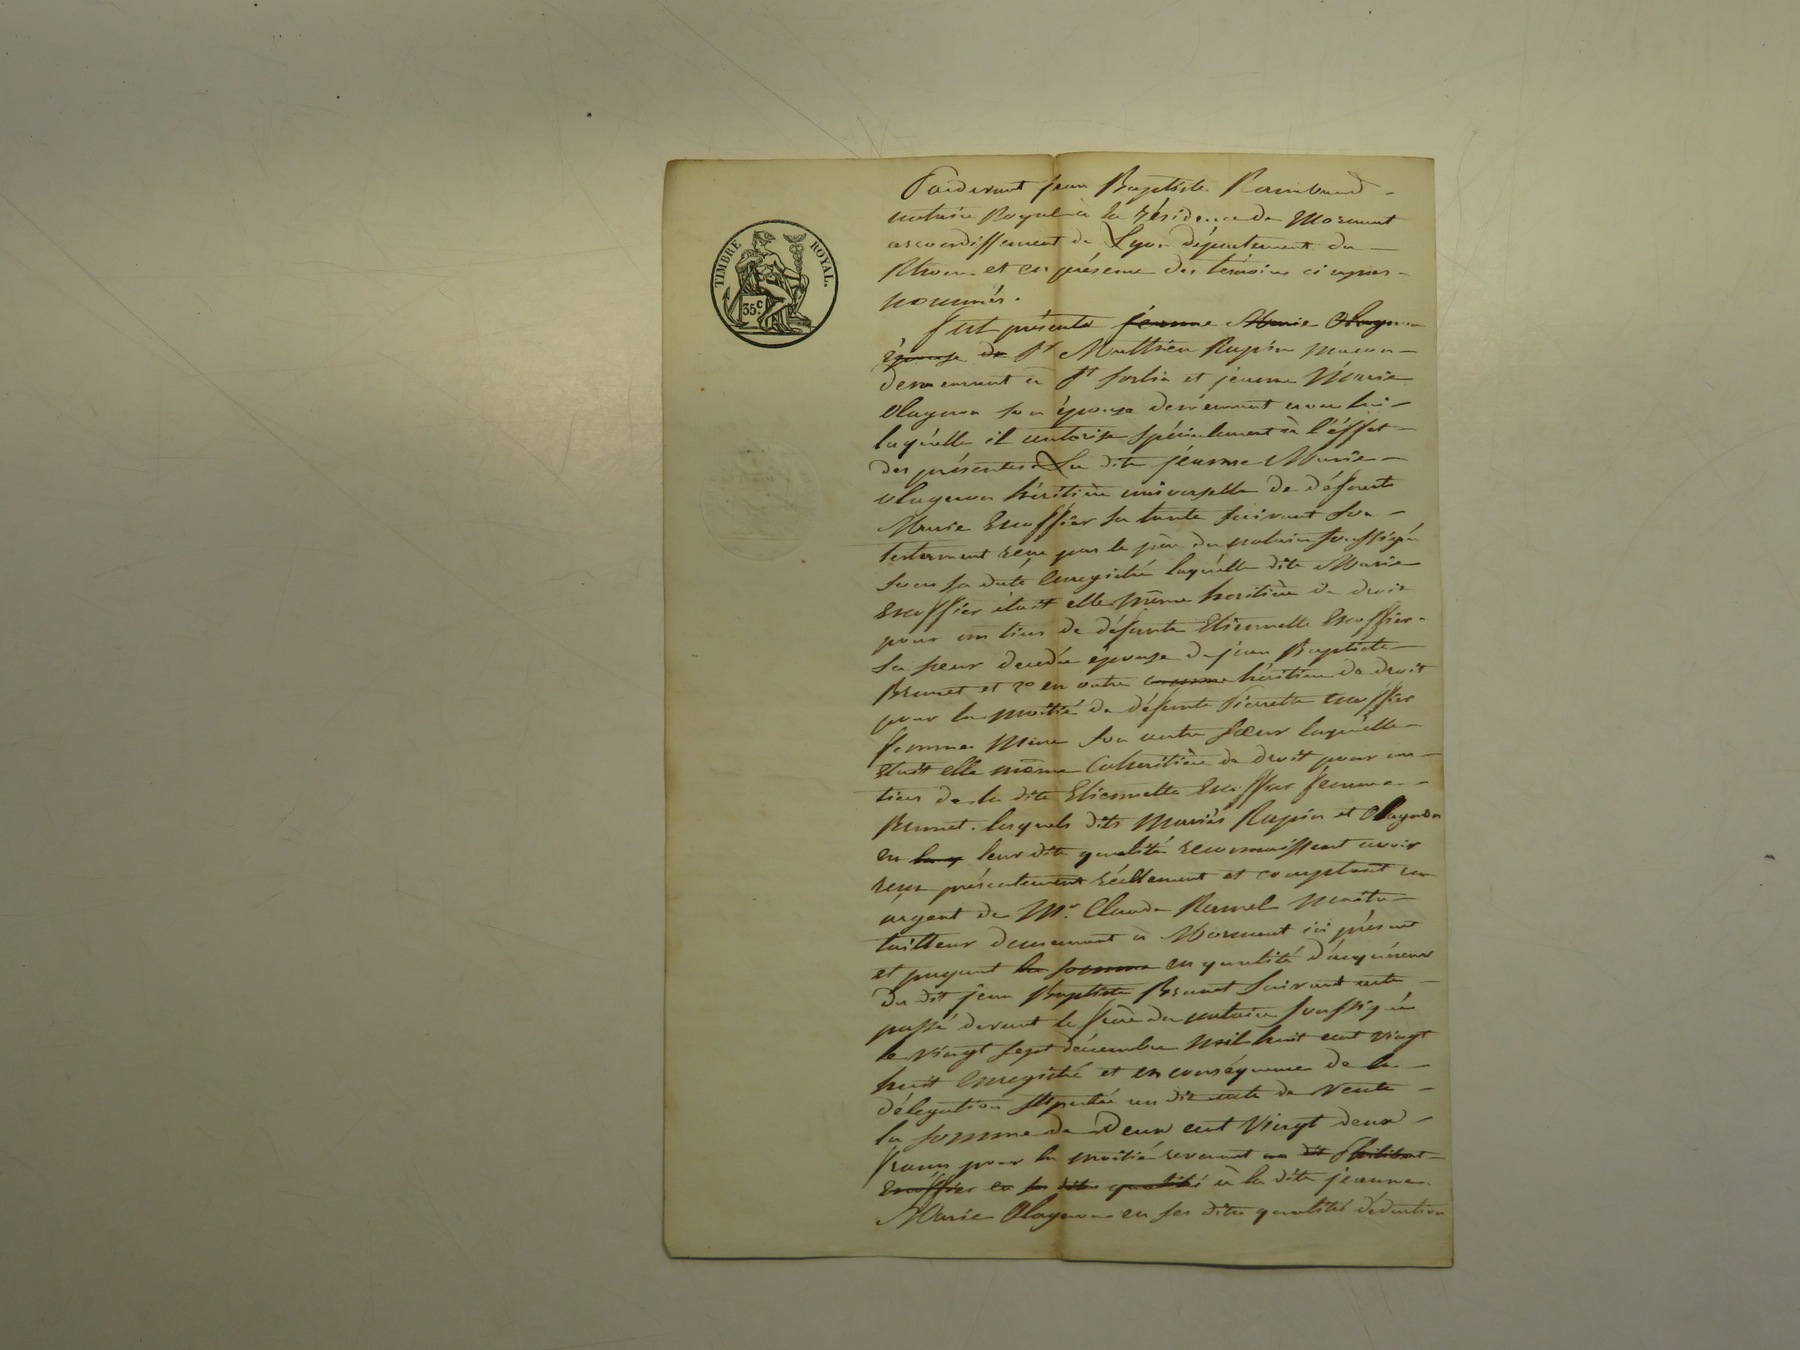 TIMBRE ROYAL.
35 c.
Pardevant jean Baptiste Rambaud
notaire Royal à la résidence de Mornant
arrondissement de Lyon département du
Rhone et en présence des témoins ci après
nommés.
fut présente jeanne Marie Olagnon
épouse de Sr Matthieu Rapin
demeurant à St Sorlin et jeanne Marie
Olagnon son épouse demeurant avec lui
laquelle il autorise spécialement à l'éffet
des présentes La dite jeanne Marie
Olagnon héritière universelle de défunte
Marie Escoffier sa tante suivant son
testament reçu par le père du notaire soussigné
sous sa date enregistré laquelle dite Marie
Escoffier étoit elle même héritière de droit
pour un tiers de défunte Etiennette Escoffier
sa soeur decedée épouse de jean Baptiste
Brunet et 2o en outre comme héritière de droit
pour la moitié de défunte Pierrette Escoffier
femme son autre soeur laquelle
étoit elle même Cohéritière de droit pour un
tiers de la dite Etiennette Escoffier femme
Brunet. lesquels dits Mariés Rapin et Olagnon
en leur dite qualité reconnaissent avoir
reçu présentement réellement et comptant en
argent de Mr. Claude maitre
tailleur demeurant à Mornant ici présent
et payant la somme en qualité d'acquéreur
du dit jean Baptiste Brunet suivant acte
passé devant le père du notaire soussigné
le vingt sept décembre Mil huit cent vingt
huit enregistré et en conséquence de la
délégation stipulée au dit acte de Vente
la somme de Deux cent Vingt deux
francs pour la moitié revenant au dit Philibert
Escoffier en sa dite qualité à la dite jeanne
Marie Olagnon en ses dites qualités déduction